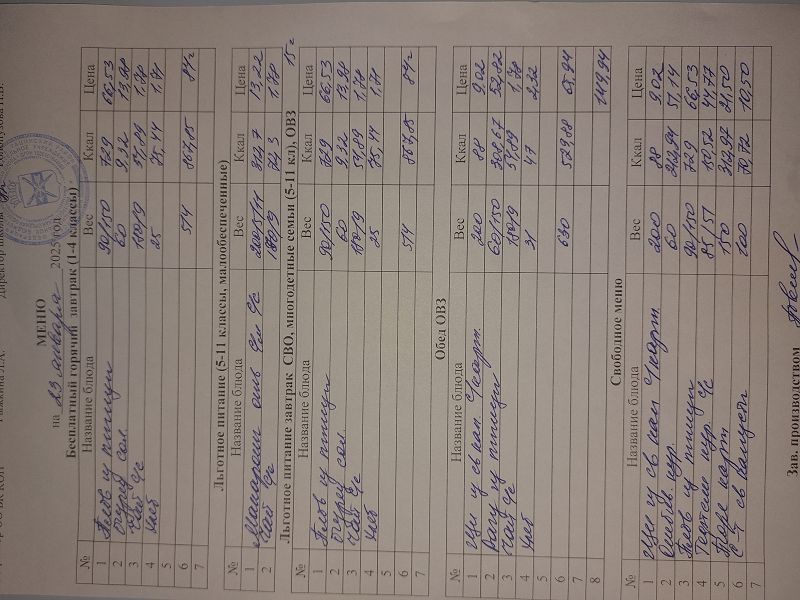 МЕНЮ
на 23 января 2025 год
Бесплатный горячий завтрак (1-4 классы)
№ Название блюда Вес Ккал Цена
1 Плов из птицы 90/150 729 66,53
2 Огурец сол. 60 9,32 13,98
3 Чай с/с 180/9 54,89 1,78
4 Хлеб 25 75,44 1,71
5
6 514 867,85 84 г
7
Льготное питание (5-11 классы, малообеспеченные)
№ Название блюда Вес Ккал Цена
1 Макароны отв 13,22
2 Чай с/с 180/9 1,78
15 г
Льготное питание завтрак СВО, многодетные семьи (5-11 кл), ОВЗ
№ Название блюда Вес Ккал Цена
1 Плов из птицы 90/150 729 66,53
2 Огурец сол. 60 9,32 13,98
3 Чай с/с 180/9 54,89 1,78
4 Хлеб 25 75,44 1,71
5
6 514 867,85 84 г
7
Обед ОВЗ
№ Название блюда Вес Ккал Цена
1 Щи из св кап с/карт 200 88 9,02
2 Рагу из птицы 60/150 308,67 52,82
3 Чай с/с 180/9 54,89 1,78
4 Хлеб 31 47 2,32
5
6 630 65,94
7
8 149,94
Свободное меню
№ Название блюда Вес Ккал Цена
1 Щи из св кап с/карт 200 88 9,02
2 60 212,94 51,14
3 Плов из птицы 90/150 729 66,53
4 Тефтели кур. с/с 85/51 150,52 44,77
5 Пюре карт 150 312,97 21,50
6 С-т св капусты 100 70,72 10,50
Зав. производством